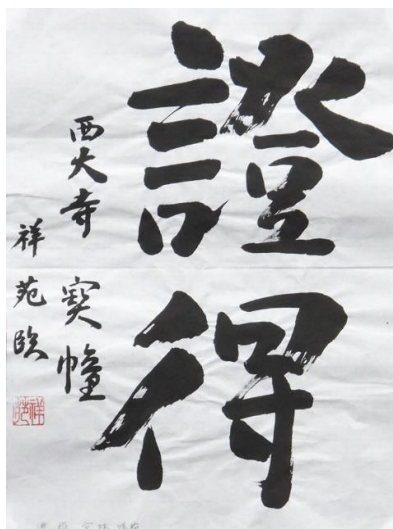 證得
西大寺
幢
祥苑臨